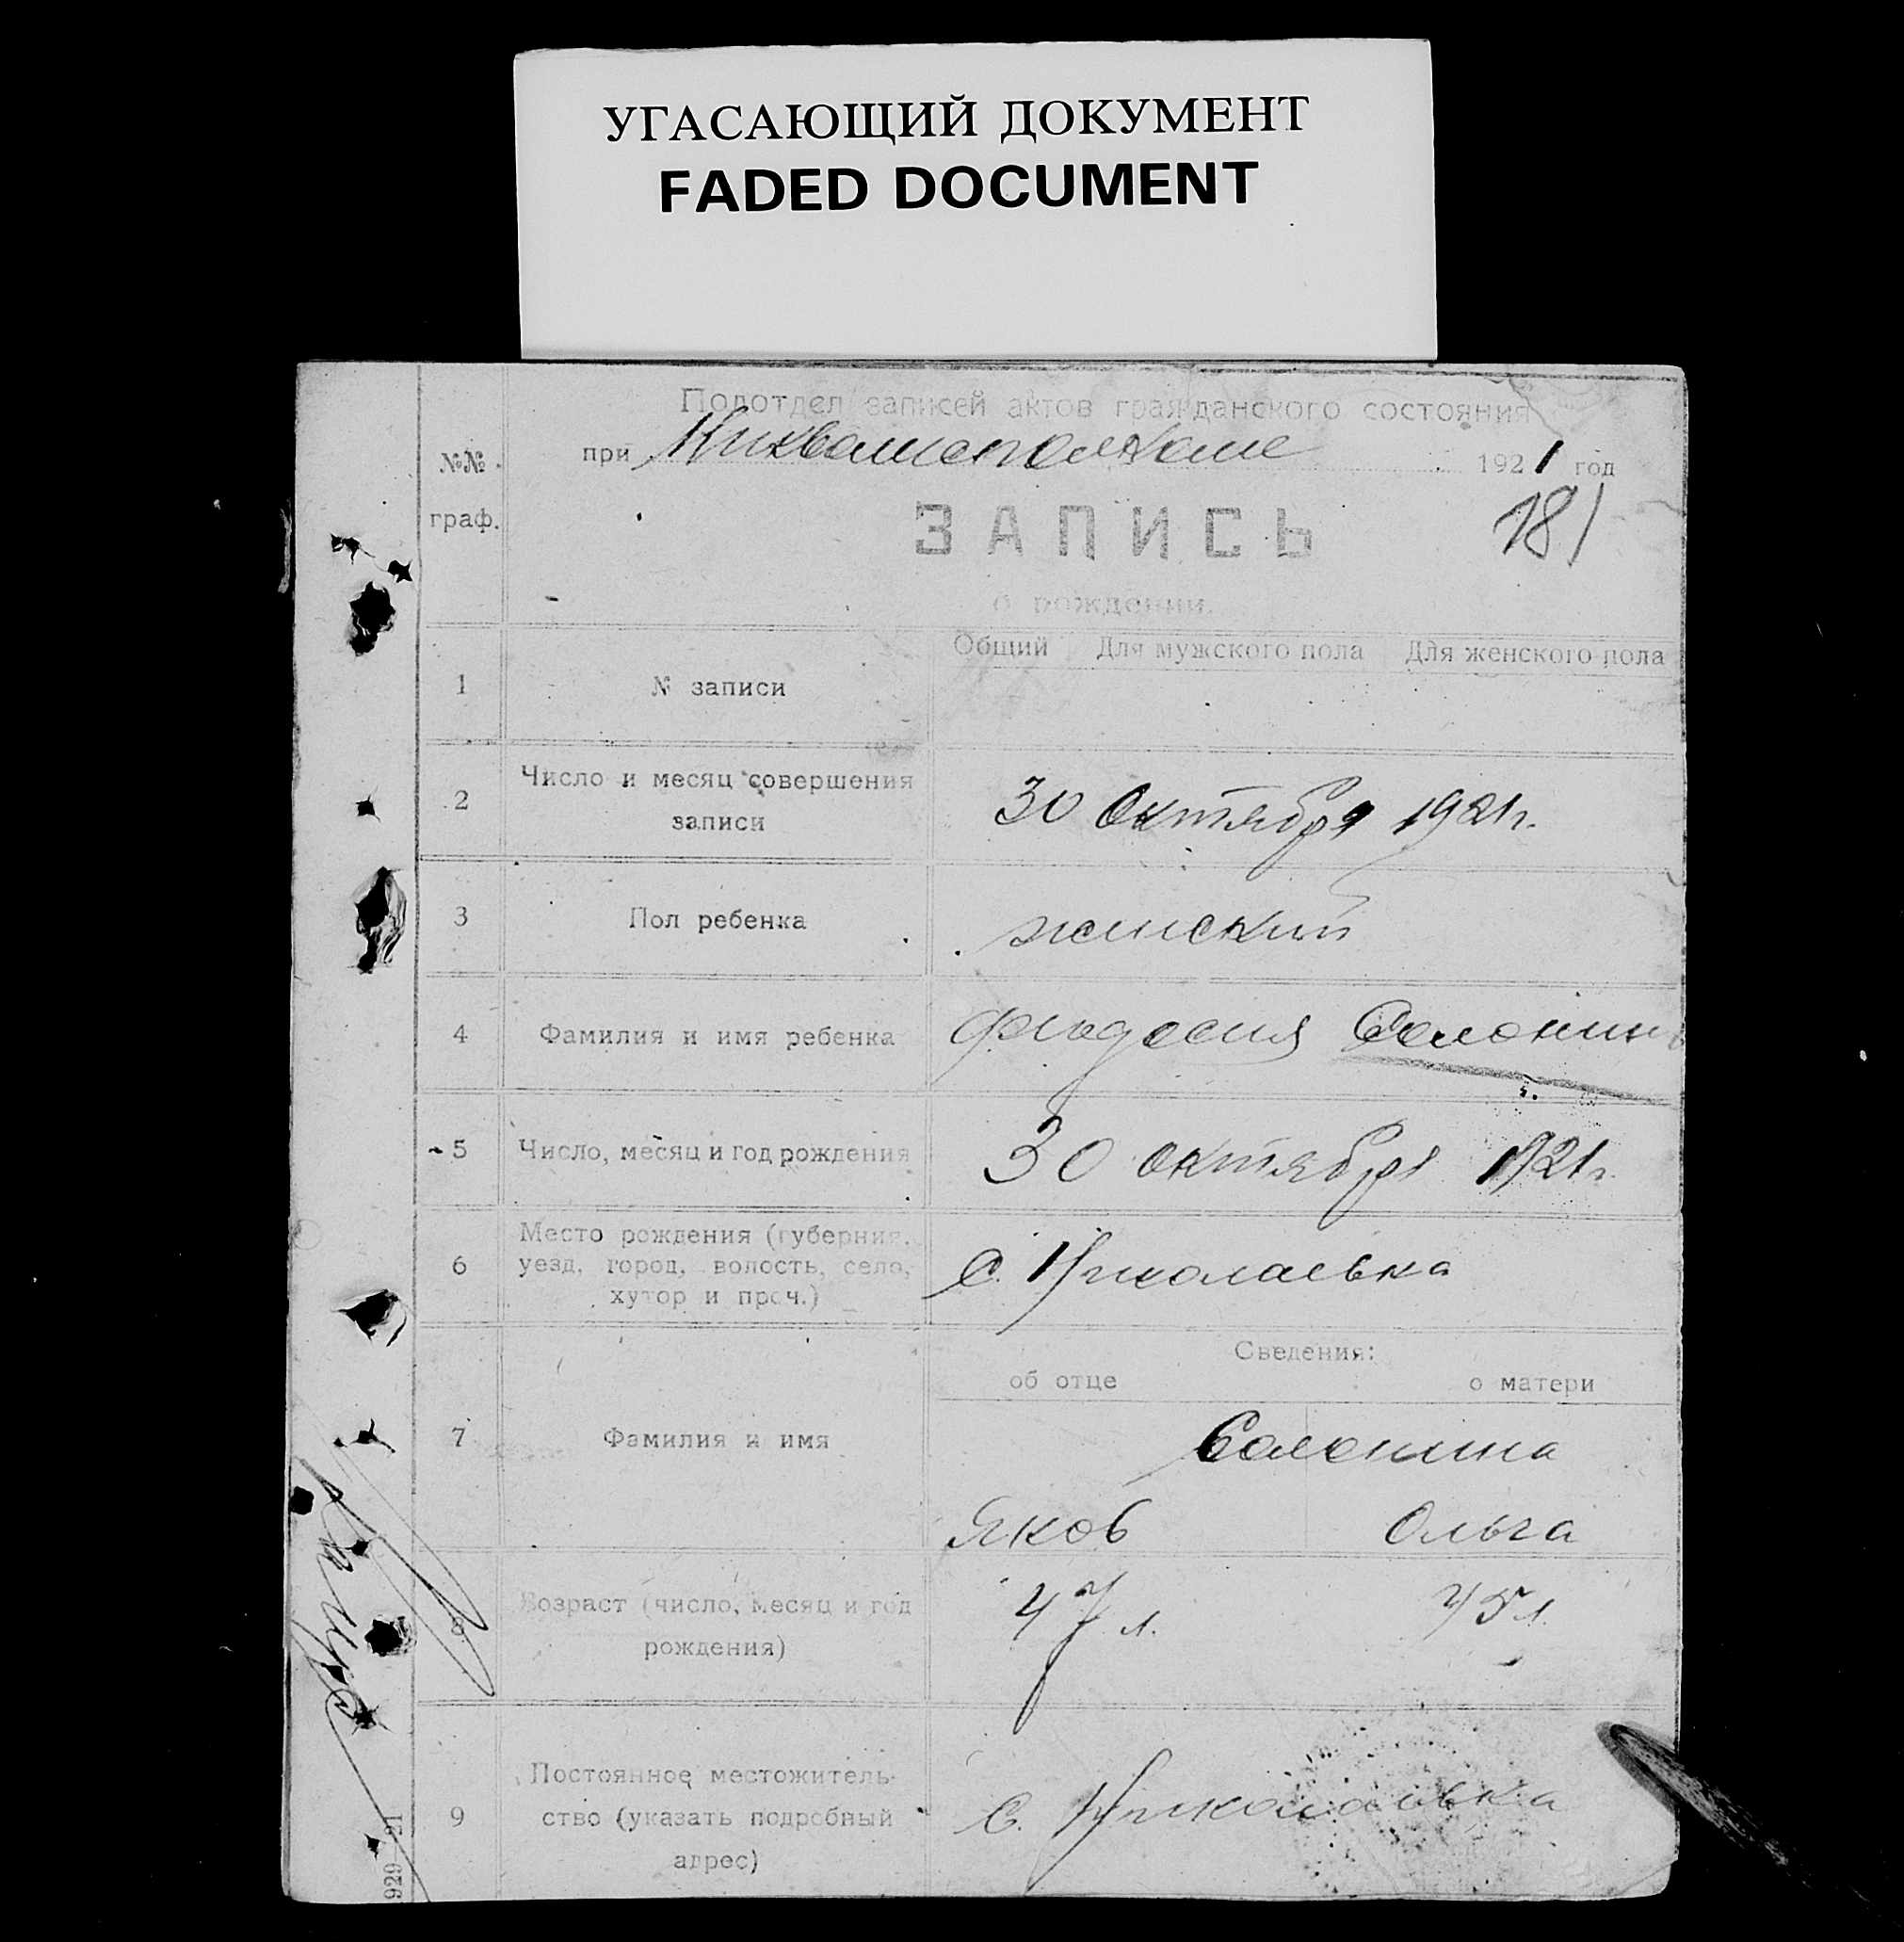 УГАСАЮЩИЙ ДОКУМЕНТ
FADED DOCUMENT
Подотдел записей актов гражданского состояния
при 1921 год
№№
граф.
ЗАПИСЬ
181
о рождении.
Общий Для мужского пола Для женского пола
1 № записи
2 Число и месяц совершения
записи
30 Октября 1921 г.
3 Пол ребенка
женский
4 Фамилия и имя ребенка
Феодосия
5 Число, месяц и год рождения
30 октября 1921 г.
6 Место рождения (губерния,
уезд, город, волость, село,
хутор и проч.)
С. Николаевка
Сведения:
об отце о матери
7 Фамилия и имя
Солонина
Яков Ольга
8 Возраст (число, месяц и год
рождения)
47 л. 45 л.
9 Постоянное местожитель-
ство (указать подробный
адрес)
С. Николаевка
929—21